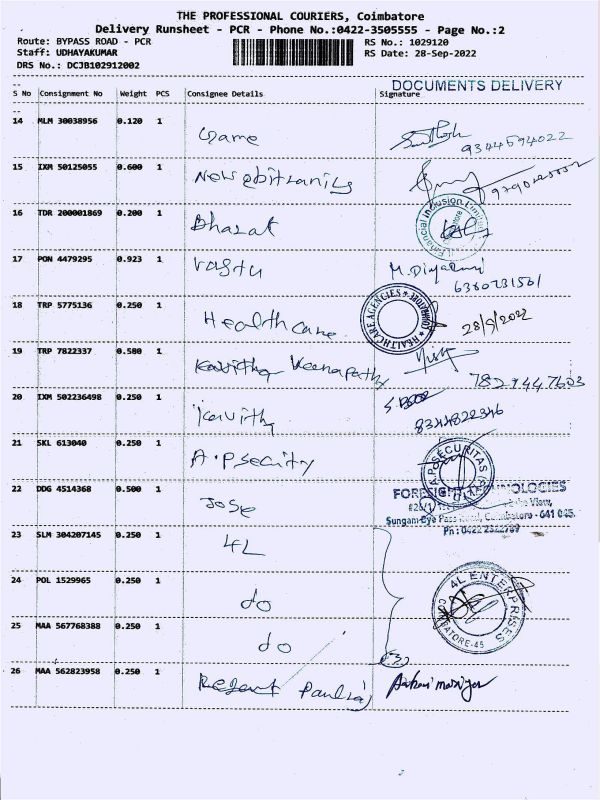 THE PROFESSIONAL COURIERS, Coimbatore
Delivery Runsheet - PCR - Phone No.:0422-3505555 - Page No.:2
Route: BYPASS ROAD - PCR
RS No.: 1029120
Staff: UDHAYAKUMAR
RS Date: 28-Sep-2022
DRS No.: DCJB102912002
DOCUMENTS DELIVERY
S No Consignment No Weight PCS Consignee Details Signature
14 MLM 30038956 0.120 1
9344594022
15 IXM 50125055 0.600 1
16 TDR 200001869 0.200 1 Bharat
Financial Inclusion Limited
17 PON 4479295 0.923 1 Vastu
6380731561
18 TRP 5775136 0.250 1 Healthcare
HEALTHCARE AGENCIES * COIMBATORE *
28/9/2022
19 TRP 7822337 0.580 1 Kavitha Veenapathy
7829447603
20 IXM 502236498 0.250 1 Kavitha
8344822346
21 SKL 613040 0.250 1 A.P secority
A.P. SECURITAS (P)
22 DDG 4514368 0.500 1 Jose
Coimbatore - 641 045.
23 SLM 304207145 0.250 1 4L
24 POL 1529965 0.250 1 do
4L ENTERPRISES
COIMBATORE-45
25 MAA 567768388 0.250 1 do
(3)
26 MAA 562823958 0.250 1 Regent Paulraj